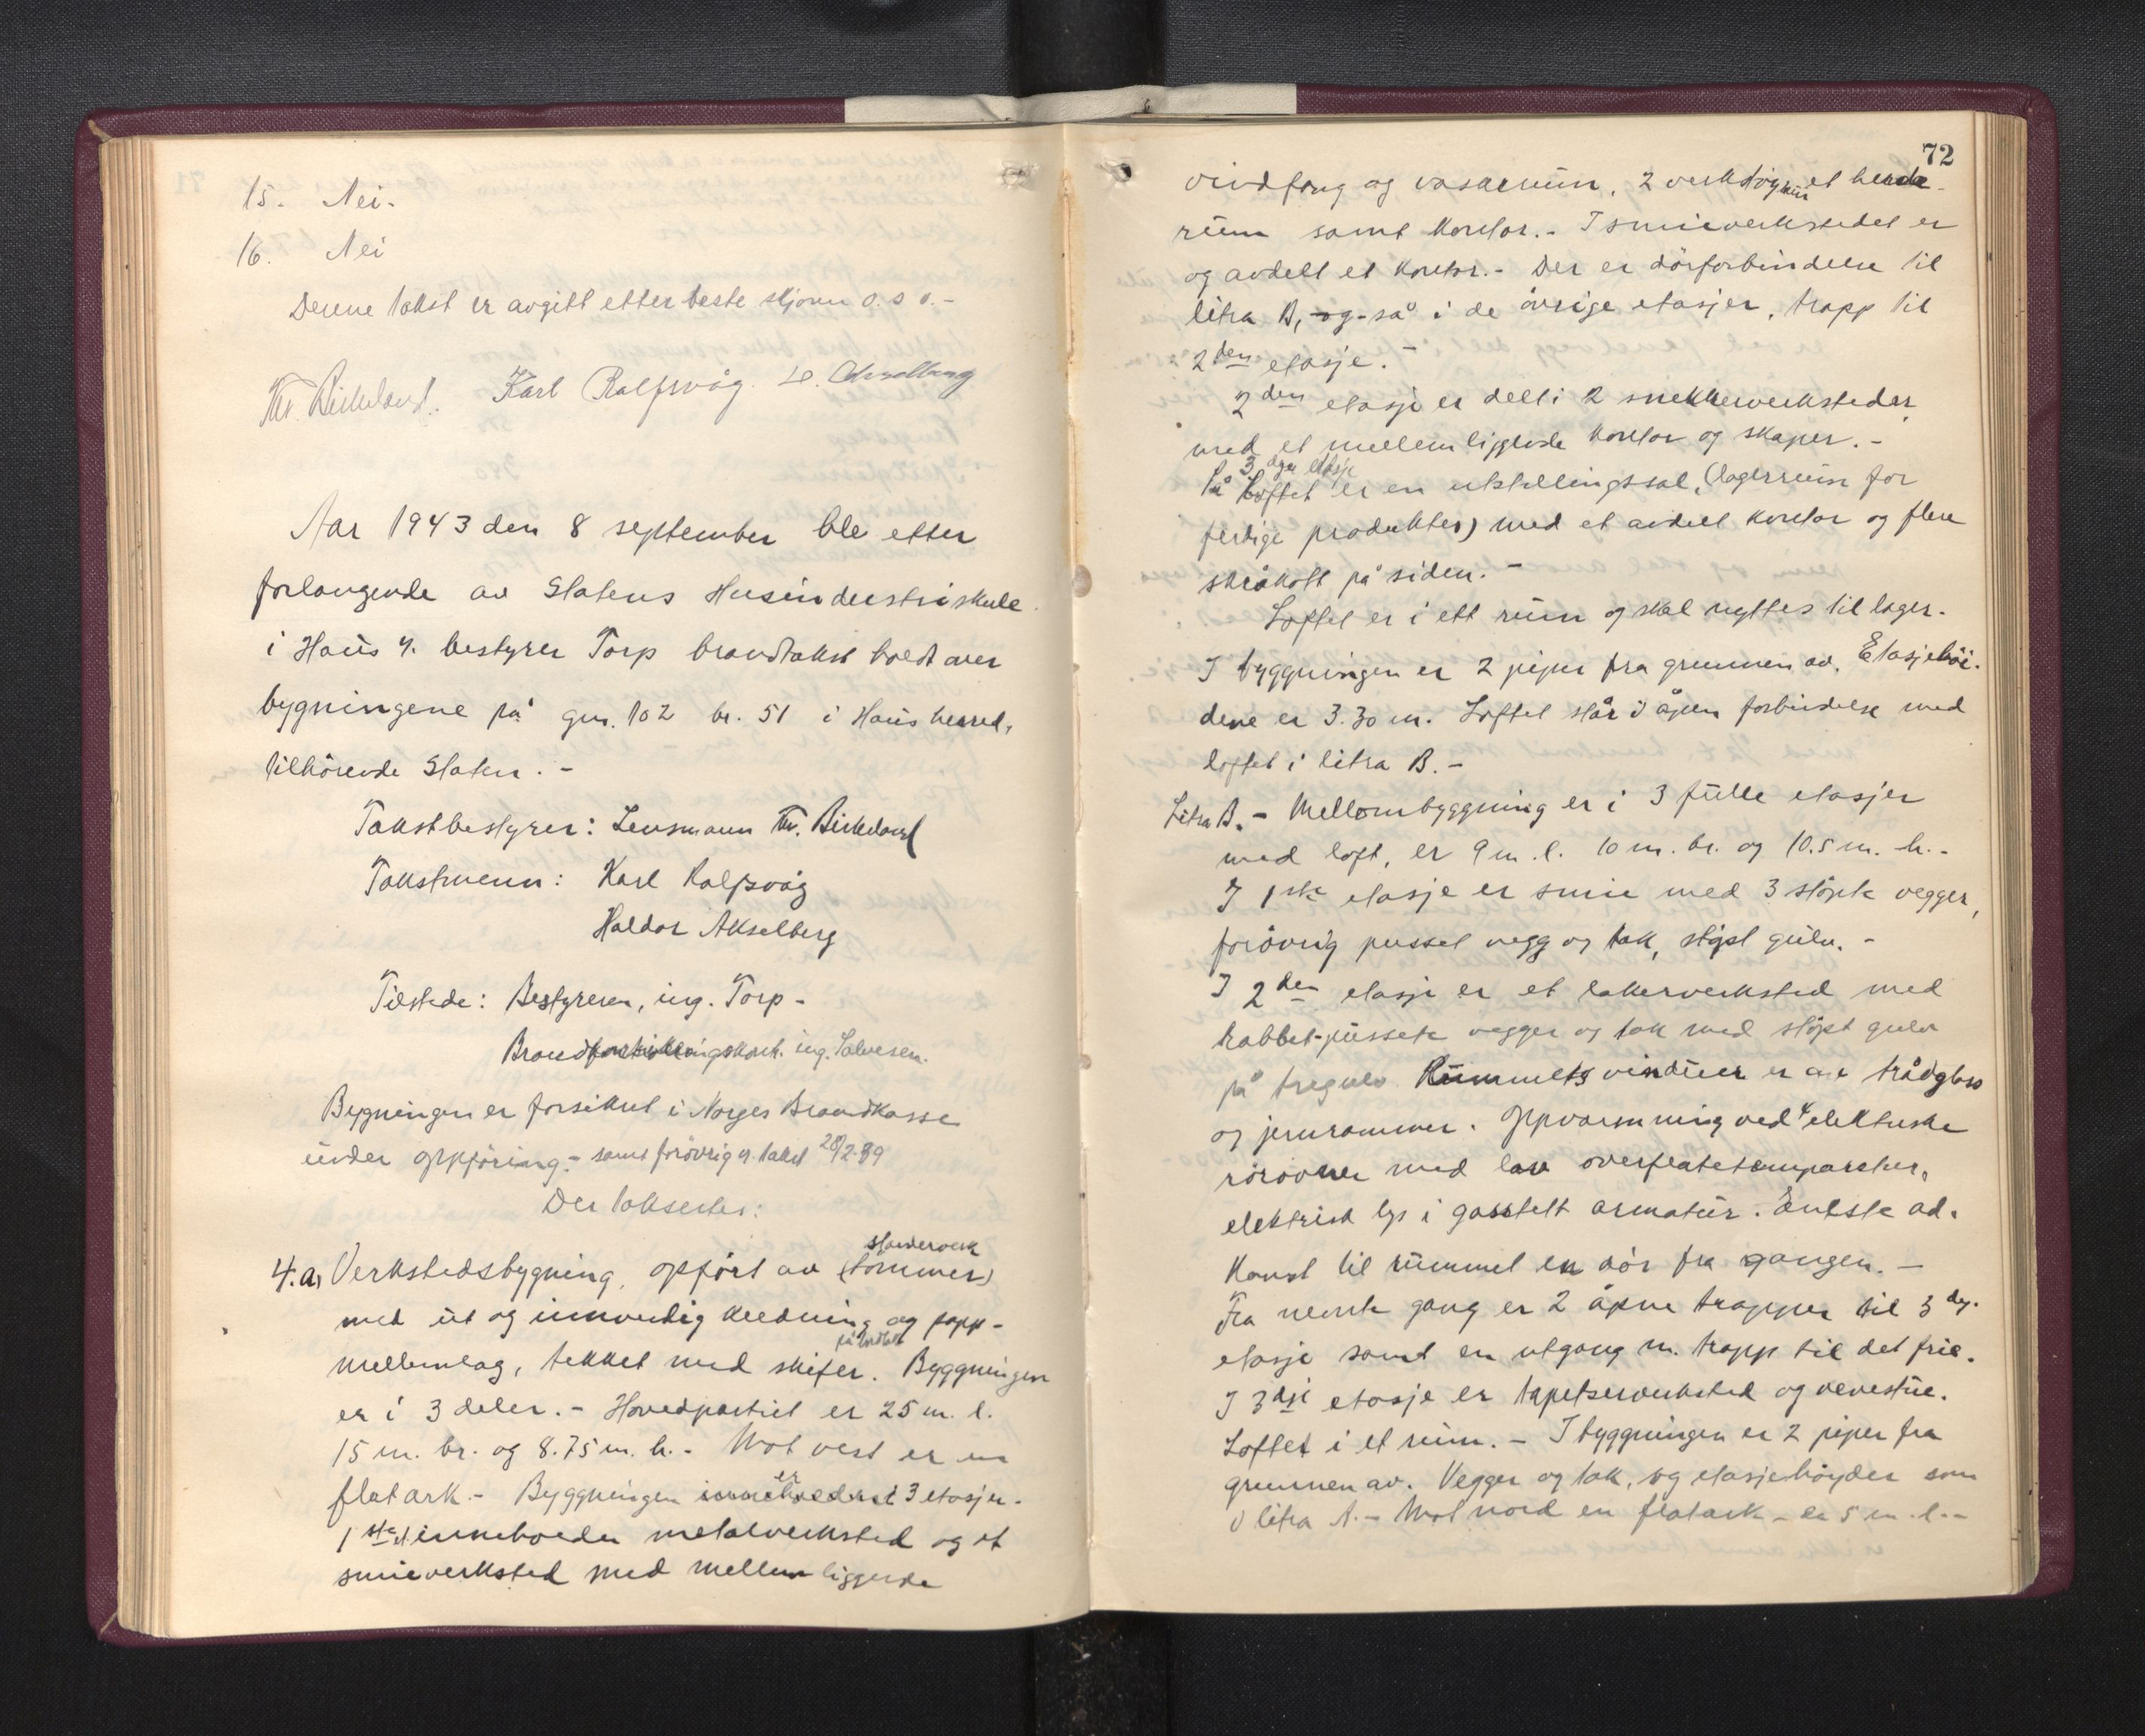 15. Nei.
16. Nei
Denne takst er avgitt etter beste skjønn o.s.v.-
Th. Birkeland. Karl Rolfsvåg.
Aar 1943 den 8 september ble etter
forlangende av Statens Husindustriskule
i Haus v. bestyrer Torp brandtakst holdt over
bygningene på gnr. 102 br. 51 i Haus herred,
tilhörende Staten. -
Takstbestyrer: Lensmann Th. Birkeland
Takstmenn: Karl Rolfsvåg
Haldor Akselberg
Tilstede: Bestyreren, ing. Torp -
ing. Salvesen.
Bygningen er forsikret i Norges Brandkasse
under oppföring. - samt forövrig v. takst 28/2-39
Der taksertes:
standerverk
4.a, Verkstedsbygning, opfört av (tömmer)
med ut og innvendig kledning og papp-
på bordtak
mellemlag, tekket med skifer. Byggningen
er i 3 deler. - Hovedpartiet er 25 m. l.
15 m. br. og 8.75 m. h. - Mot vest er en
flatark. - Byggningen er 3 etasjer.
1ste et. inneholder metalverksted og et
smieverksted med mellem liggende
72
vindfang og vaskerum, 2 verktøyrum et herde-
rum samt kontor. - I smieverkstedet er
og avdelt et kontor. - Der er dörforbindelse til
litra B, og-så i de övrige etasjer, trapp til
2den etasje. -
2den etasje er delt i 2 snekkerverksteder
med et mellemliggende kontor og skaper. -
3dje etasje
På Loftet er en utstillingssal, (lagerrum for
ferdige produkter) med et avdelt kontor og flere
skråkott på siden. -
Loftet er i ett rum og skal nyttes til lager.
I byggningen er 2 piper fra grunnen av. Etasjehöi-
dene er 3.30 m. Loftet står i åpen forbindelse med
loftet i litra B. -
Litra B. - Mellombyggning er i 3 fulle etasjer
med loft, er 9 m. l. 10 m. br. og 10.5 m. h. -
I 1ste etasje er smie med 3 stöpte vegger,
forövrig pusset vegg og tak, stöpt gulv. -
I 2den etasje er et lakerverksted med
rabbet-pussete vegger og tak med stöpt gulv
på tregulv Rummets vinduer er av trådglass
og jernrammer. Oppvarmning ved 4 elektriske
rörovner med lav overflatetemperatur,
elektrisk lys i gasstett armatur. Eneste ad-
komst til rummet en dör fra gangen. -
Fra nevnte gang er 2 åpne trapper til 3dje.
etasje samt en utgang m. trapp til det frie.
I 3dje etasje er tapetserverksted og vevestue.
Loftet i et rum. - I byggningen er 2 piper fra
grunnen av. Vegger og tak, og etasjehöyder som
i litra A. - Mot nord en flatark - er 5 m. l. -